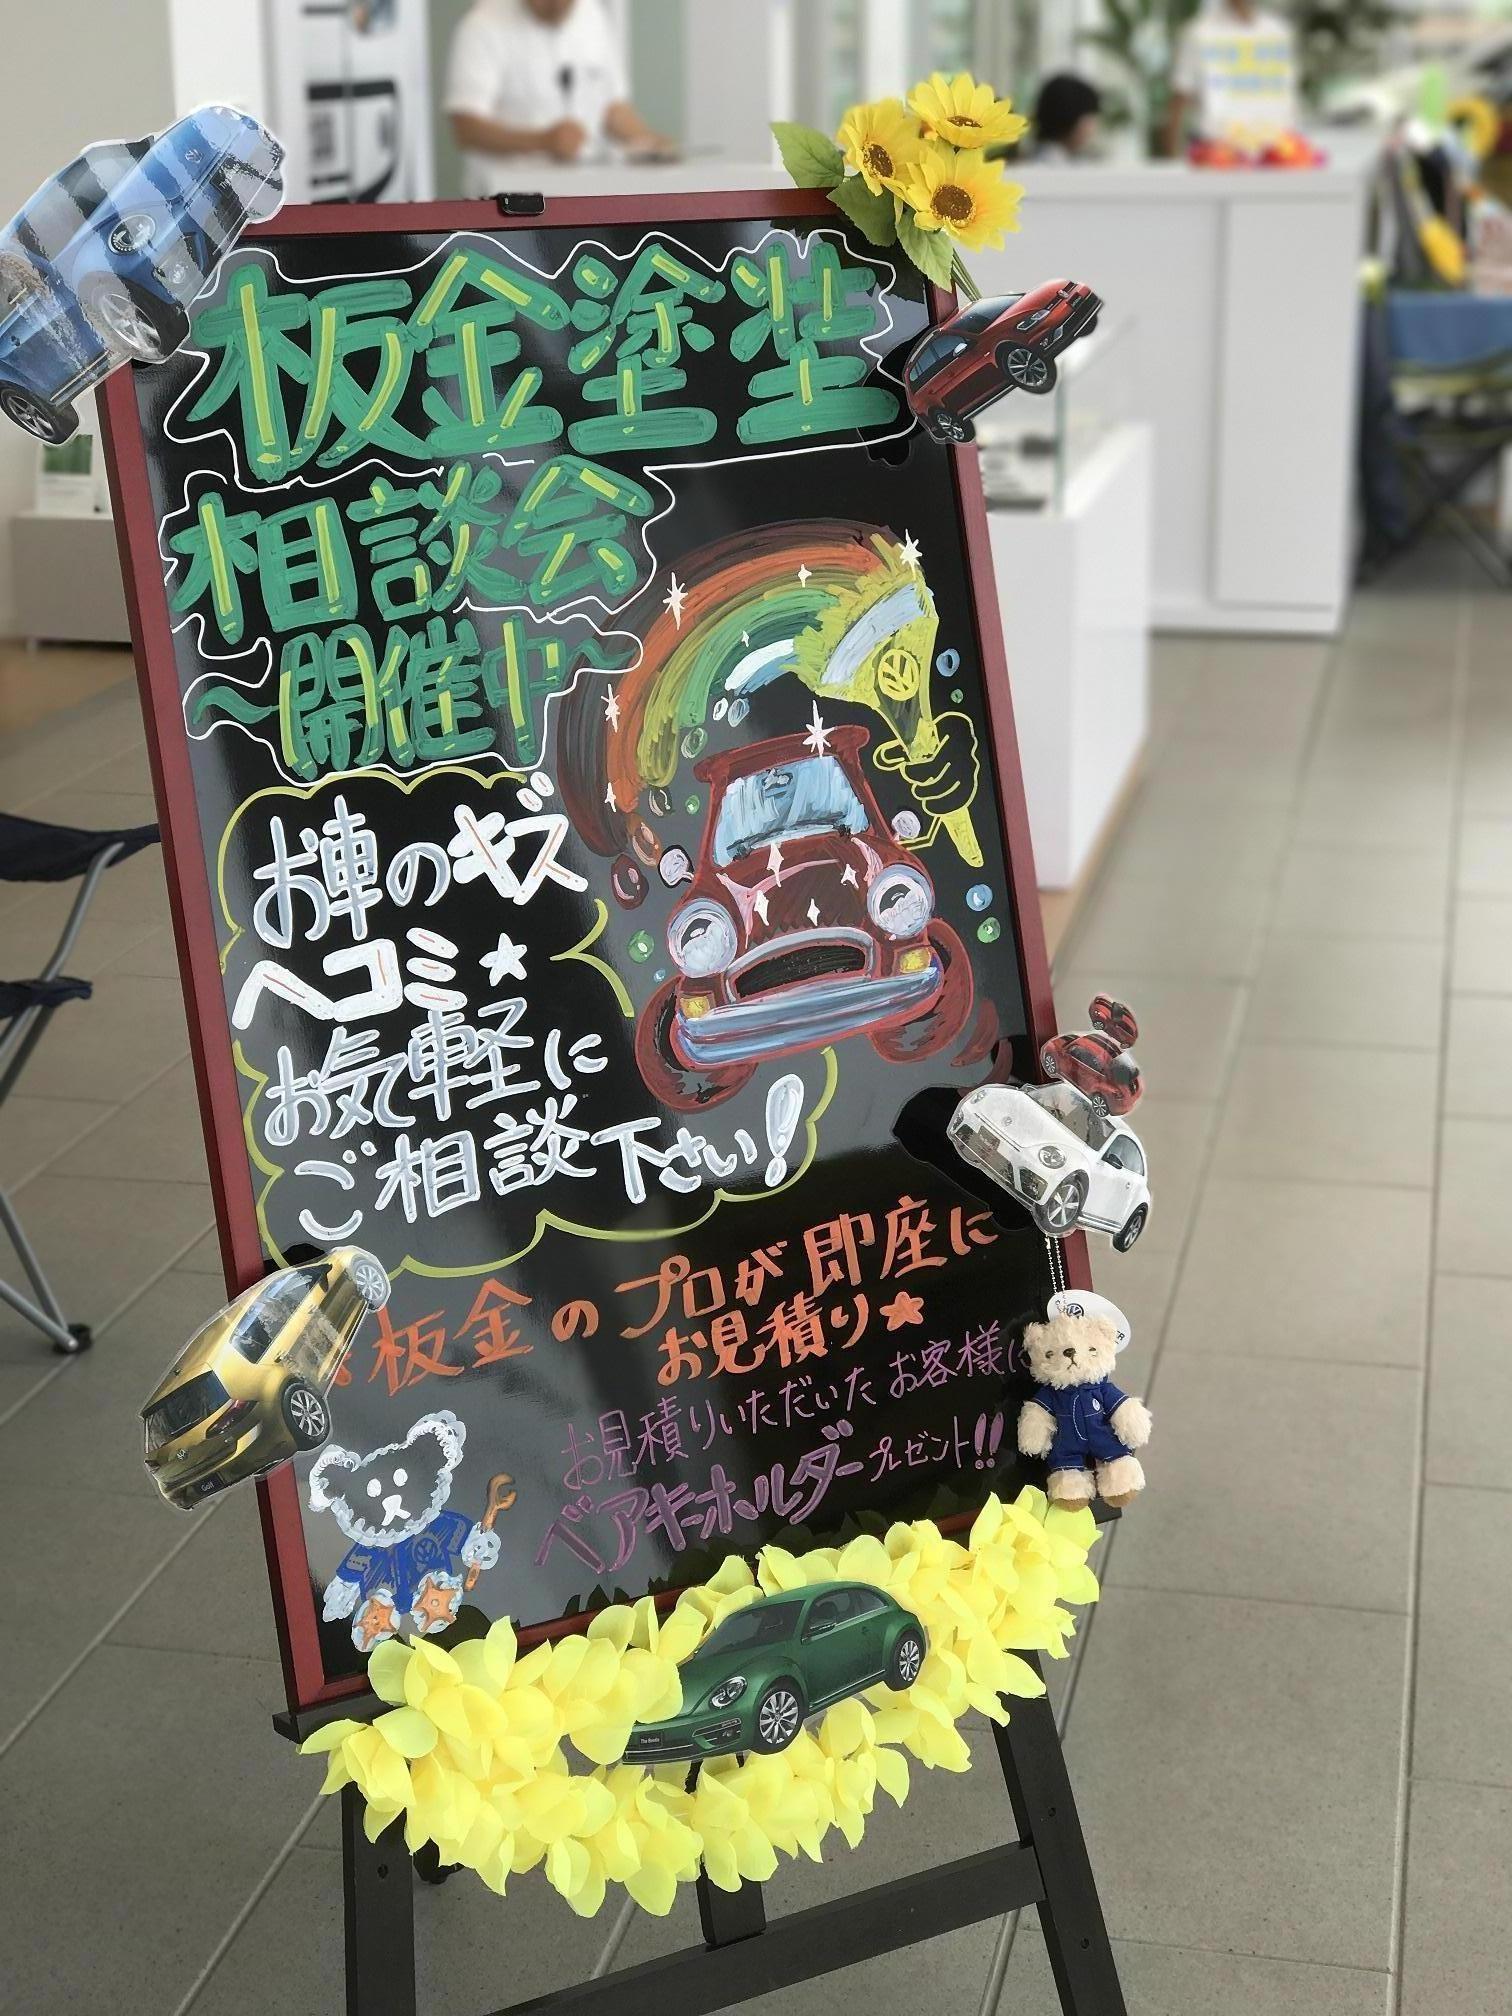 板金塗装
相談会
～開催中～
お車のキズ
ヘコミ★
お気軽に
ご相談下さい!
板金のプロが即座に
お見積り★
お見積りいただいたお客様に
ベアキーホルダープレゼント!!
Golf
The Beetle